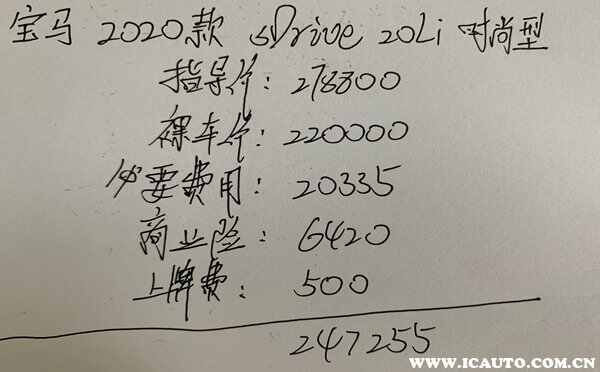 宝马 2020款 sDrive 20Li 时尚型
指导价: 278800
裸车价: 220000
必要费用: 20335
商业险: 6420
上牌费: 500
247255
www.icauto.com.cn